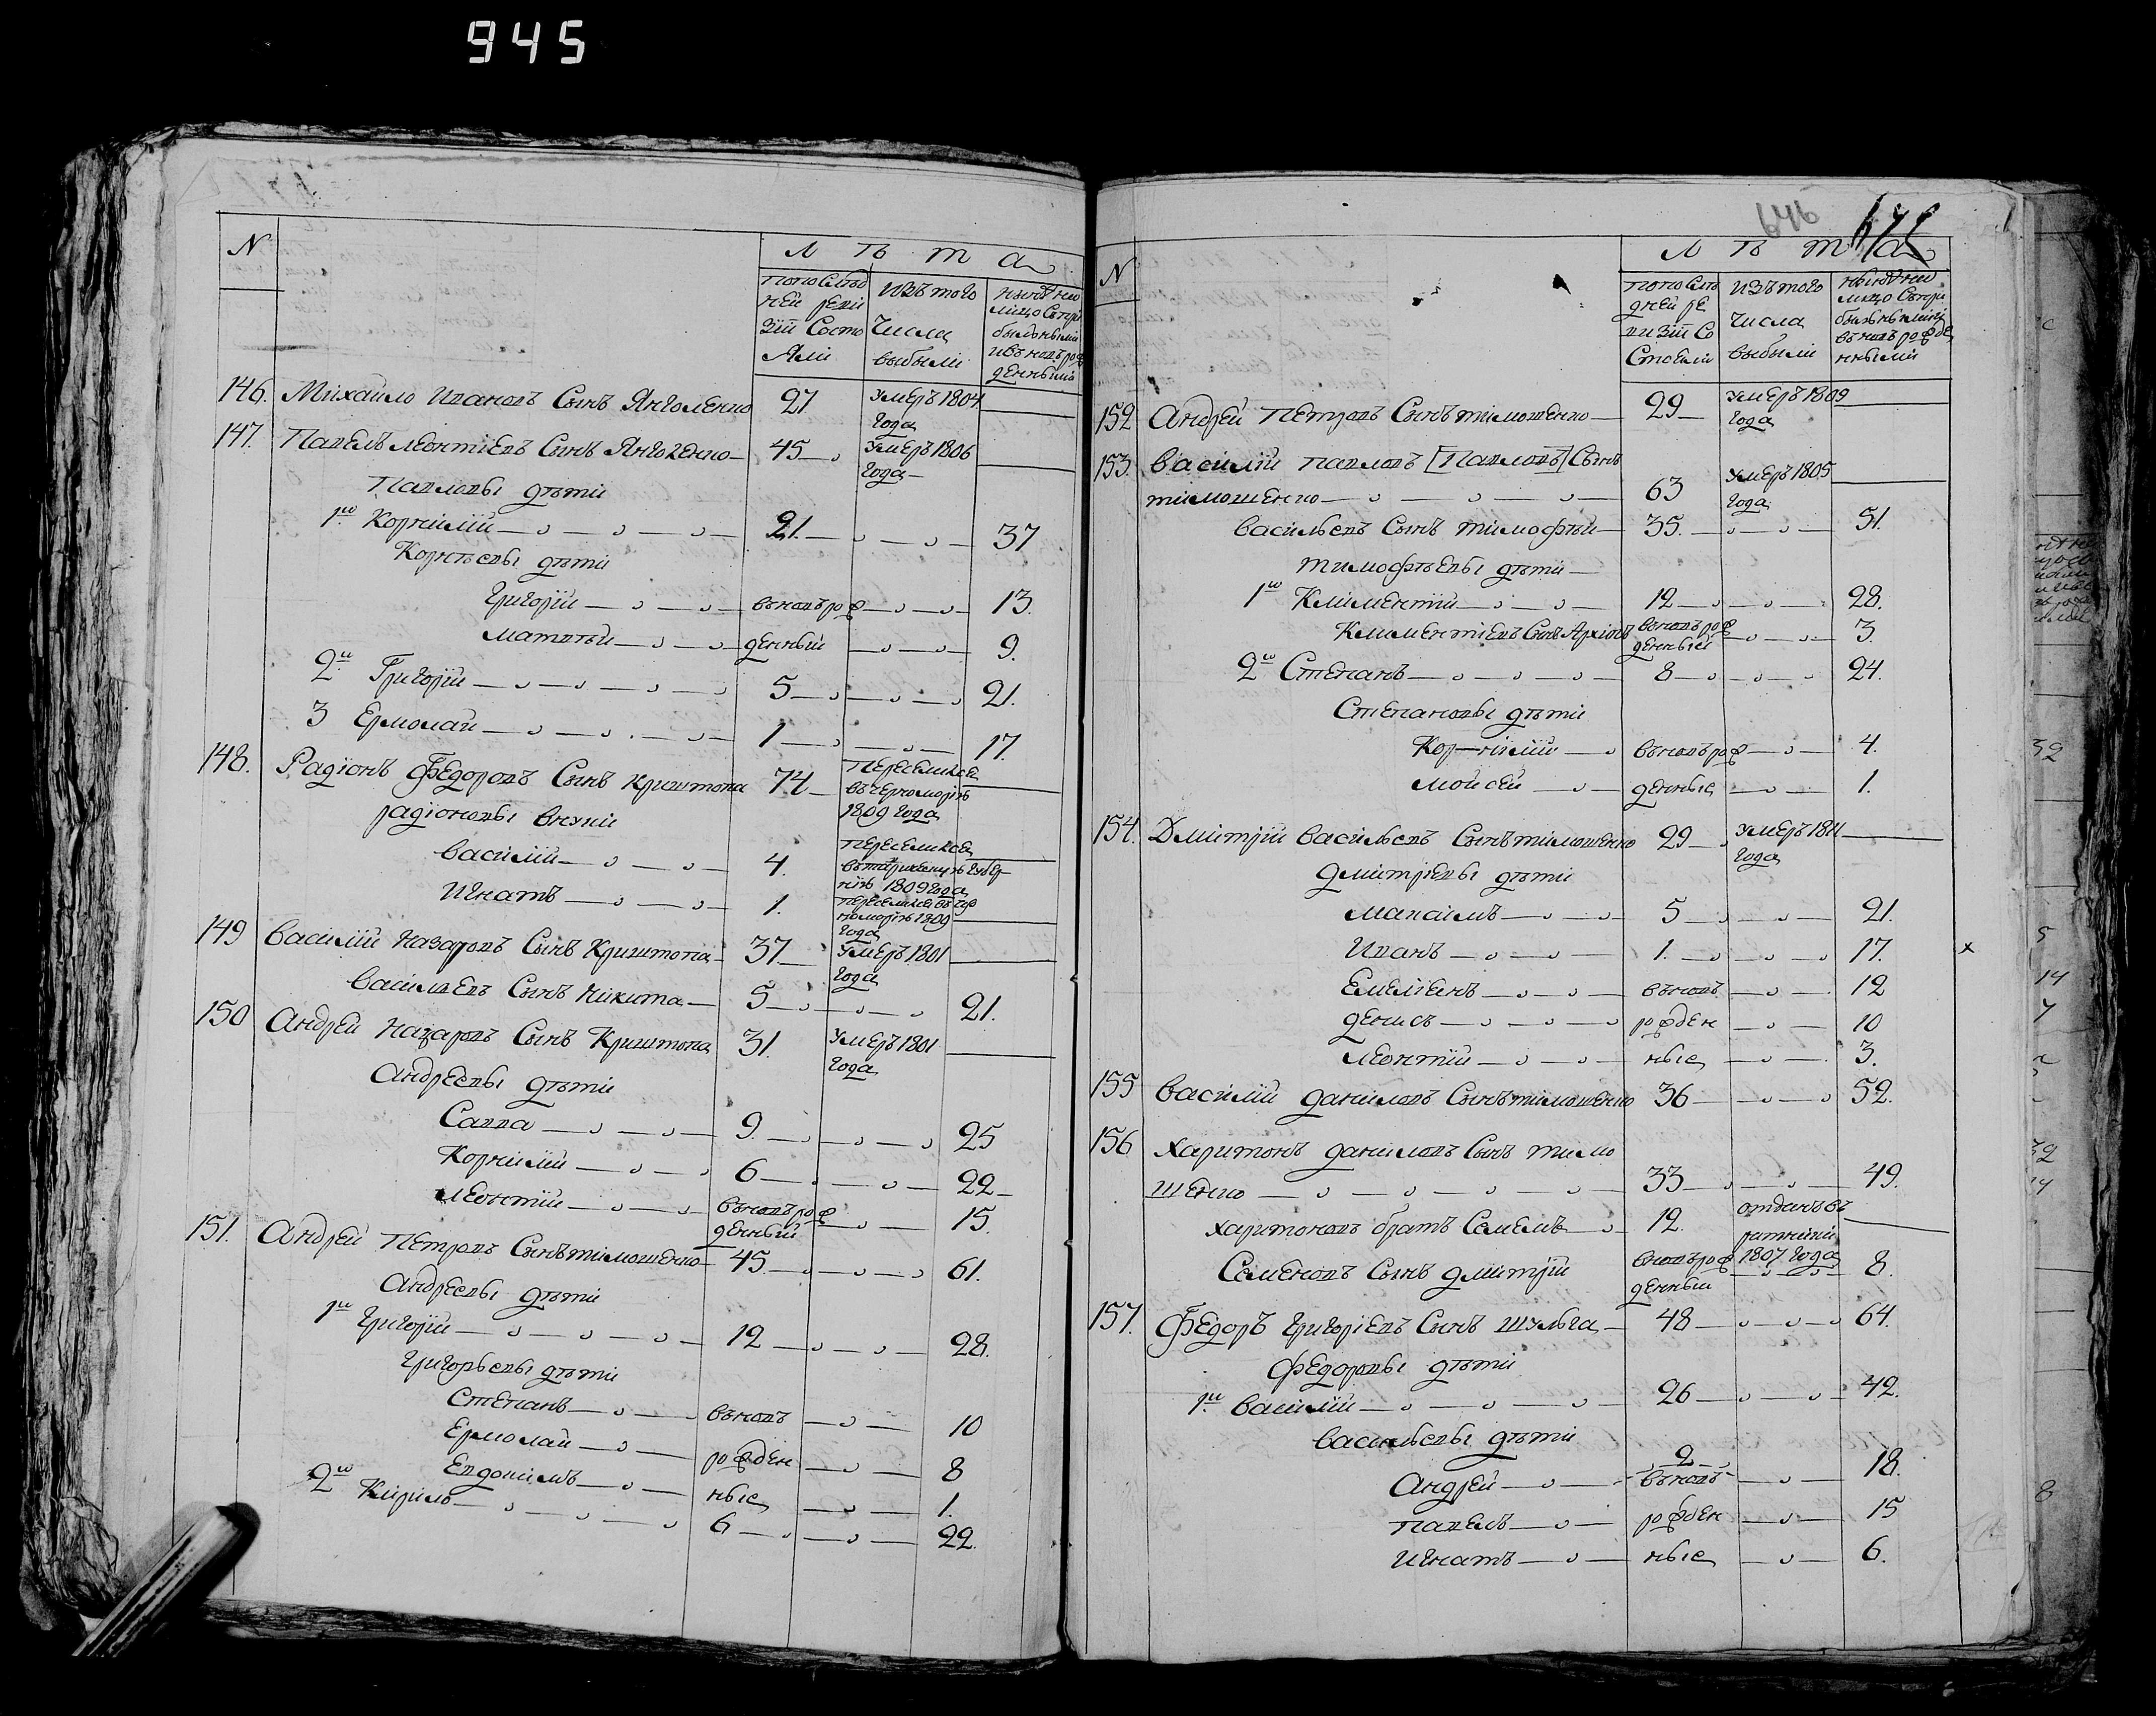 945
N
Л Ѣ т а
попослѣд
ней реви
зіи Состо
Яли
изътого
числа
выбыли
нынѣ на
лицо Съпри
былыми
ивновьрож
денными
146. Михайло Ивановъ Сынъ Яноленко 27 умеръ 1804 года
147. Павелъ Леонтіевъ Сынъ Яноленко 45 умеръ 1806 года
Павловы дѣти
1й Корнилій 21. 37
Корнѣевы дѣти
Григорій вновьрож 13.
Матвѣй денный 9.
2й Григорій 5 21.
3 Ермолай 1 17.
148. Радіонъ Федоровъ Сынъ Криштопа 74 переселился въчерноморію 1809 года
радіоновы внуки
Василій 4. переселился въ таврическую губернію 1809 года
Игнатъ 1. переселился въ черноморію 1809 года
149 Василій Назаровъ Сынъ Криштопа 37 умеръ 1801 года
Васильевъ Сынъ Никита 5 21.
150 Андрей Назаровъ Сынъ Криштопа 31. умеръ 1801 года
Андреевы дѣти
Савва 9. 25
Корнилій 6 22
Леонтій вновьрож денный 15.
151. Андрей Петровъ Сынъ тимошенко 45 61.
Андреевы дѣти
1й Григорій 12 28.
Григорьевы дѣти
Степанъ вновь 10
Ермолай рожден 8
Евдокимъ ные 1.
2й Кирило 6 22.
646
N
Л Ѣ т а
попослѣ
дней ре
визіи Со
Стояли
изътого
числа
выбыли
нынѣ на
лицо Съпри
былыми
вновь рожде
нными
152 Андрей Петровъ Сынъ тимошенко 29 умеръ 1809 года
153. Василій Павловъ [Павловъ] Сынъ
тимошенко 63 умеръ 1805 года
Васильевъ Сынъ тимофѣй 35. 51.
тимофѣевы дѣти
1й Климентій 12 28.
Климентіевъ Сынъ Архипъ вновьрож денный 3.
2й Степанъ 8 24.
Степановы дѣти
Корнилій вновьрож 4.
Мойсей денные 1.
154. Дмитрій Васильевъ Сынъ тимошенко 29 умеръ 1811 года
дмитріевы дѣти
Максимъ 5 21.
Иванъ 1. 17. x
Емеліянъ вновь 12
денисъ рожден 10
Леонтій ные 3.
155 Василій даниловъ Сынъ тимошенко 36 52.
156 Харитонъ даниловъ Сынъ тимо
шенко 33 49.
харитоновъ братъ Семенъ 12. отданъ въ ратники 1807 года
Семеновъ Сынъ дмитрій вновьрож денный 8.
157. Федоръ Григоріевъ Сынъ шульга 48 64.
федоровы дѣти
1й Василій 26 42.
Васильевы дѣти
Андрей 2 18.
Павелъ вновь рожден 15
Игнатъ ные 6.